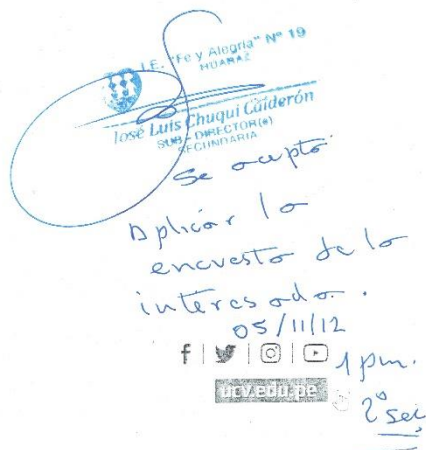 I.E. "Fe y Alegría" Nº 19
HUARAZ
José Luis Chuqui Calderón
SUB - DIRECTOR(e)
SECUNDARIA
Se acepta
Aplicar la
encuesta de la
interesada.
05/11/12
1 pm.
ucv.edu.pe
2º sec